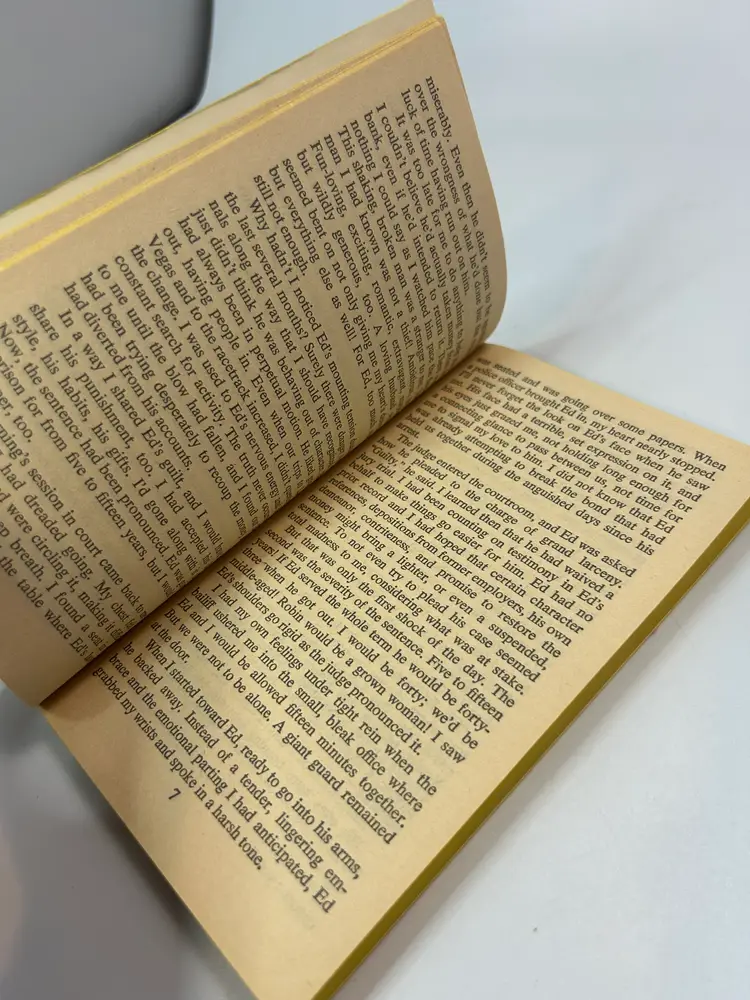 miserably. Even then he didn't seem to be
over the wrongness of what he'd done
luck of time having run out on him.
It was too late for me to do anything
I couldn't believe he'd actually taken
bank, even if he'd intended to return it.
nothing I could say as I watched him
This shaking, broken man was a stranger to
man I had known was not a thief! Ambitious
Fun-loving, exciting, romantic, extravagant
but wildly generous, too. A loving
seemed bent on not only giving me my heart's
but everything else as well! For Ed too
still not enough.
Why hadn't I noticed Ed's mounting
the last several months? Surely there were
nals along the way that I should have
just didn't think he was behaving out of
had always been in perpetual motion. He liked
out, having people in. Even when our trips to
Vegas and to the racetrack increased, I didn't
the change. I was used to Ed's nervous energy
constant search for activity. The truth never
to me until the blow had fallen, and I found
had been trying desperately to recoup the
had diverted from his accounts.
In a way I shared Ed's guilt, and I would
share his punishment, too. I had accepted
style, his habits, his gifts. I'd gone along with
Now, the sentence had been pronounced, Ed
for from five to fifteen years, but I
too.
session in court came back to
had dreaded going. My chest
were circling it, making it
breath, I found a seat
the table where Ed's
was seated and was going over some papers. When
a police officer brought Ed in, my heart nearly stopped.
I'd never forget the look on Ed's face when he saw
me. His face had a terrible, set expression on it, and
his eyes just grazed me, not holding long enough for
a connecting glance to pass between us, not time for
me to signal my love to him. I did not know that Ed
was already attempting to break the bond that had
held us together during the anguished days since his
arrest.
The judge entered the courtroom, and Ed was asked
how he pleaded to the charge of grand larceny.
"Guilty," he said. I learned then that he had waived a
jury trial. I had been counting on testimony in Ed's
behalf to make things go easier for him. Ed had no
prior record and I had hoped that certain character
references, depositions from former employers, his own
demeanor, contriteness, and promise to restore the
money might bring a lighter, or even a suspended,
sentence. To not even try to plead his case seemed
total madness to me, considering what was at stake.
But that was only the first shock of the day. The
second was the severity of the sentence. Five to fifteen
years! If Ed served the whole term he would be forty-
three when he got out. I would be forty; we'd be
middle-aged! Robin would be a grown woman! I saw
Ed's shoulders go rigid as the judge pronounced it.
I had my own feelings under tight rein when the
bailiff ushered me into the small, bleak office where
Ed and I would be allowed fifteen minutes together.
But we were not to be alone. A giant guard remained
at the door.
When I started toward Ed, ready to go into his arms,
he backed away. Instead of a tender, lingering em-
brace and the emotional parting I had anticipated, Ed
grabbed my wrists and spoke in a harsh tone.
7